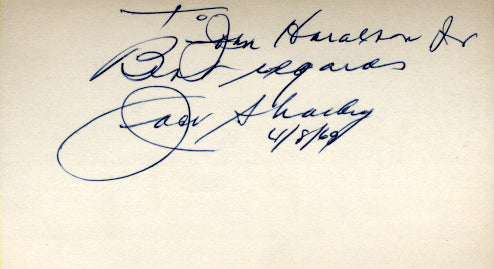 To John Haralson Jr
Best regards
Jack Sharkey
4/8/69